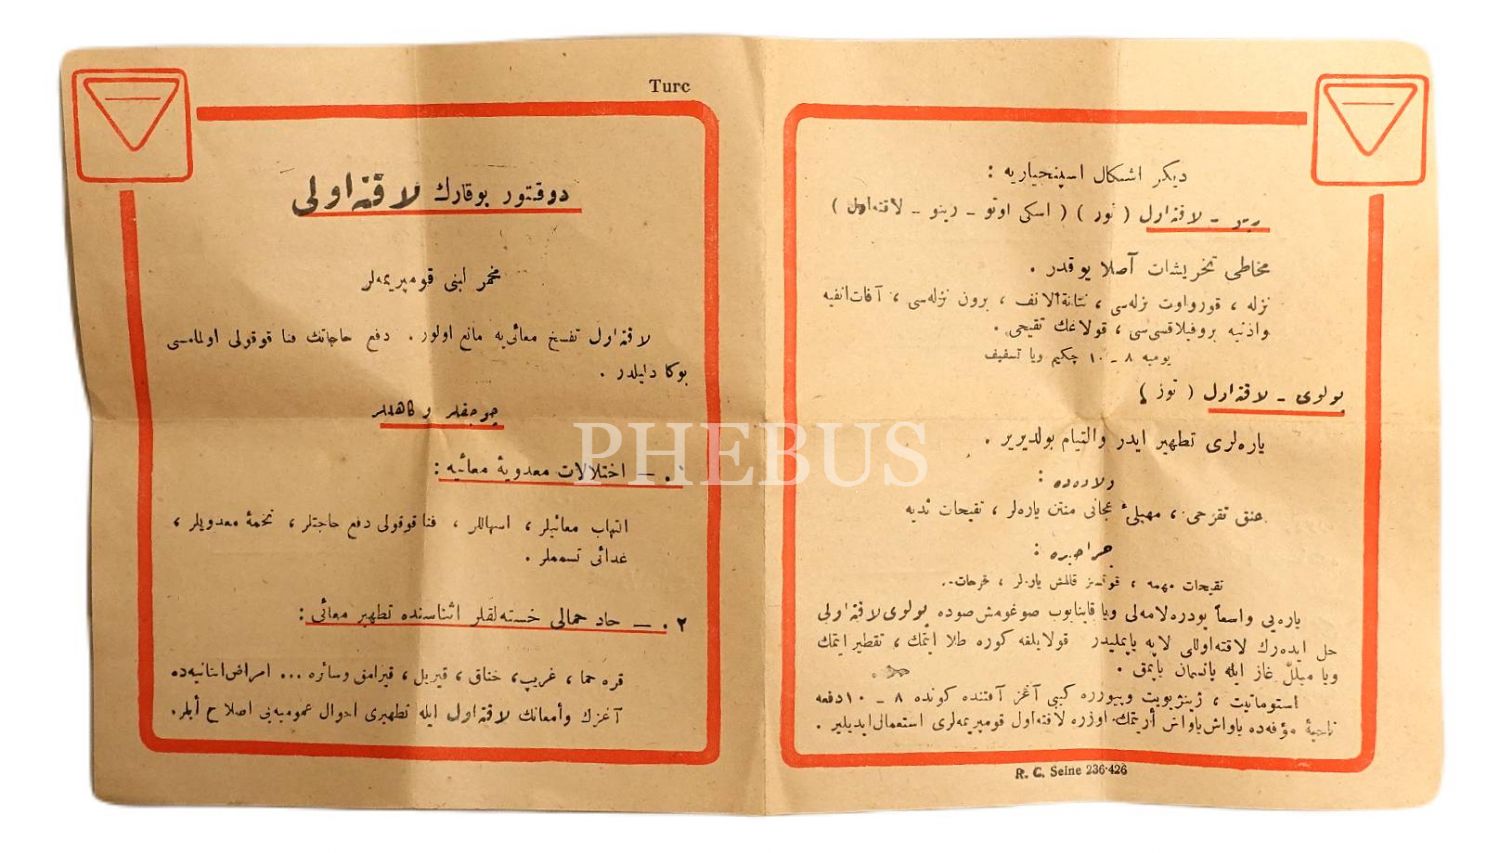 Turc
دوقتور بوقارك لاقته‌اولی
مخمر لبنی قومپریمه‌لر
لاقته‌اول تفسخ معائیه مانع اولور. دفع حاجاتك فنا قوقولی اولمامسی
بوكا دلیلدر .
چوجقلر و كاهللر
۱. — اختلالات معدویهٔ معائیه :
التهاب معائیلر ، اسهاللر ، فنا قوقولی دفع حاجتلر ، تخمهٔ معدویلر ،
غدائی تسمملر .
۲. — حاد حمالی خسته‌لقلر اثناسنده تطهیر معائی :
قره حما ، غریپ ، خناق ، قیزیل ، قیزامق وسائره ... امراض‌اسنانیه‌ده
آغزك وأمعانك لاقته‌اول ایله تطهیری احوال عمومیه‌یی اصلاح أیلر.
دیكر اشكال اسپنجیاریه :
رینو - لاقته‌اول ( توز ) ( اسكی اوتو - رینو - لاقته‌اول )
مخاطی تخریشات آصلا یوقدر .
نزله ، قورواوت نزله‌سی ، نتانةالانف ، برون نزله‌سی ، آفات‌انفیه
واذنیه بروفیلاقسی‌سی ، قولاغك تقیحی .
یومیه ۸ - ۱۰ چكیم ویا تسفیف
پولوی - لاقته‌اول ( توز )
یاره‌لری تطهیر ایدر والتیام بولدیریر .
ولاده‌ده :
عنق تقرحی ، مهبلی عجانی منتن یاره‌لر ، تقیحات ثدیه
جراحیده :
تقیحات مهمه ، قوقمش یاره‌لر ، قرحات.
یاره‌یی واسعاً پودره‌لامه‌لی ویا قاینایوب صوغومش‌صوده پولوی لاقته‌اولی
حل ایده‌رك لاقته‌اوللی لاپه یاپملیدر قولایلغه كوره طلا ایتمك ، تقطیر ایتمك
ویا مبلل غاز ایله پانسمان یاپمق .
استوماتیت ، ژینژیویت وپیوره كبی آغز آفتنده كونده ۸ - ۱۰ دفعه
ناحیهٔ مؤفه‌ده یاواش‌یاواش أریتمك اوزره لاقته‌اول قومپریمه‌لری استعمال‌ایدیلیر .
R. C. Seine 236-426
PHEBUS